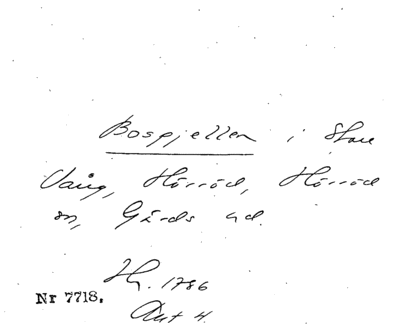 Bospjellen i Stora
Vång, Hörröd, Hörröd
sn, Gärds hd.
Hg. 1786
Akt 4.
Nr 7718.